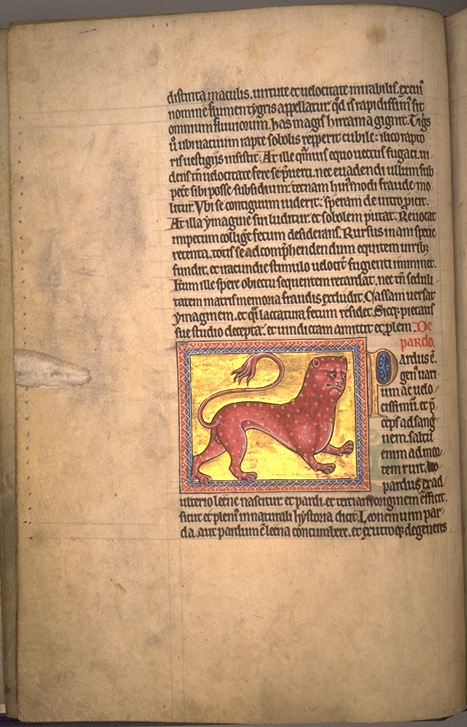 distincta maculis. uirtute et uelocitate mirabilis. ex cuiꝰ
nomine flumen tygris appellatur. qd̓ is rapidissimꝰ sit
omnium fluuiorum. has magis hircania gignit. Tigͥs
ů ubi uacuum rapte sobolis repperit cubile: ilico rapto
ris uestigiis insistit. At ille qͣmuis equo uectus fugaci. ui
dens tn̄ uelocitate fere se p̄ueniri. nec euadendi ullum sub
petere sibi posse subsidium. tecnam huiꝰmodi fraude mo
litur. Vbi se contiguum uiderit: speram de uitro ꝓicit.
At illa ymagine sui luditur. et sobolem putat. Reuocat
impetum. collige᷑ fetum desiderans. Rursus inani specie
retenta. totis se ad comp̄hendendum equitem uiribꝰ
fundit. et iracundie stimulo uelocior fugienti imminet.
Itum ille spere obiectu sequentem retardat. nec tn̄ seduli
tatem matris memoria fraudis excludit. Cassam uersat
ymaginem. et qͣsi lactatura fetum residet. Sicqꝫ pietatis
sue studio decepta. et uindictam amittit et ꝓlem. De
pardo.
Pardus ē.
genꝰ uari
um ac uelo
cissimū. et p̄
ceps ad sang
nem. saltu
enim ad mor
tem ruit. leo
pardus ex ad
ulterio leene nascitur et pardi. et tertiam originem efficit.
sicut et pleniꝰ in naturali hystoria dicit. Leonem cum par
da. aut pardum cū leena concumbere. et ex utroqꝫ degeneres